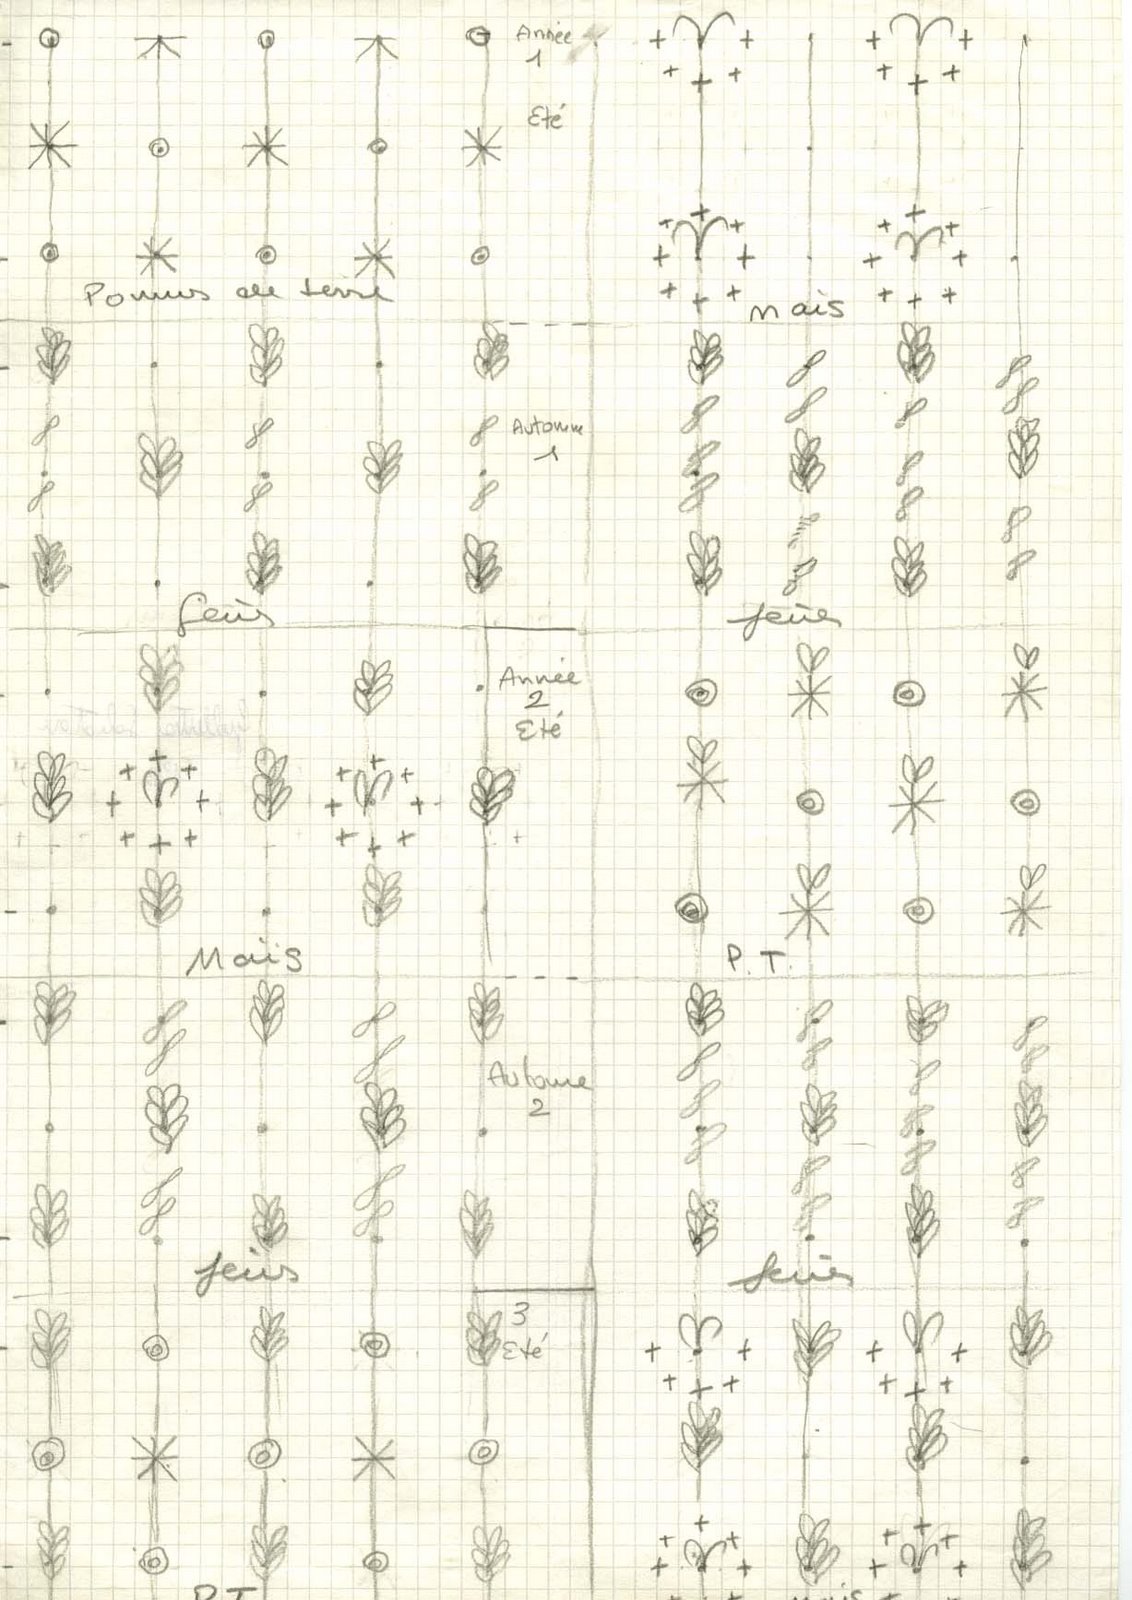 Année
1
Eté
Pommes de terre
Mais
Automne
1
feves
feves
Année
2
Eté
Mais
P.T.
Automne
2
feves
feves
3
Eté
P.T.
Mais